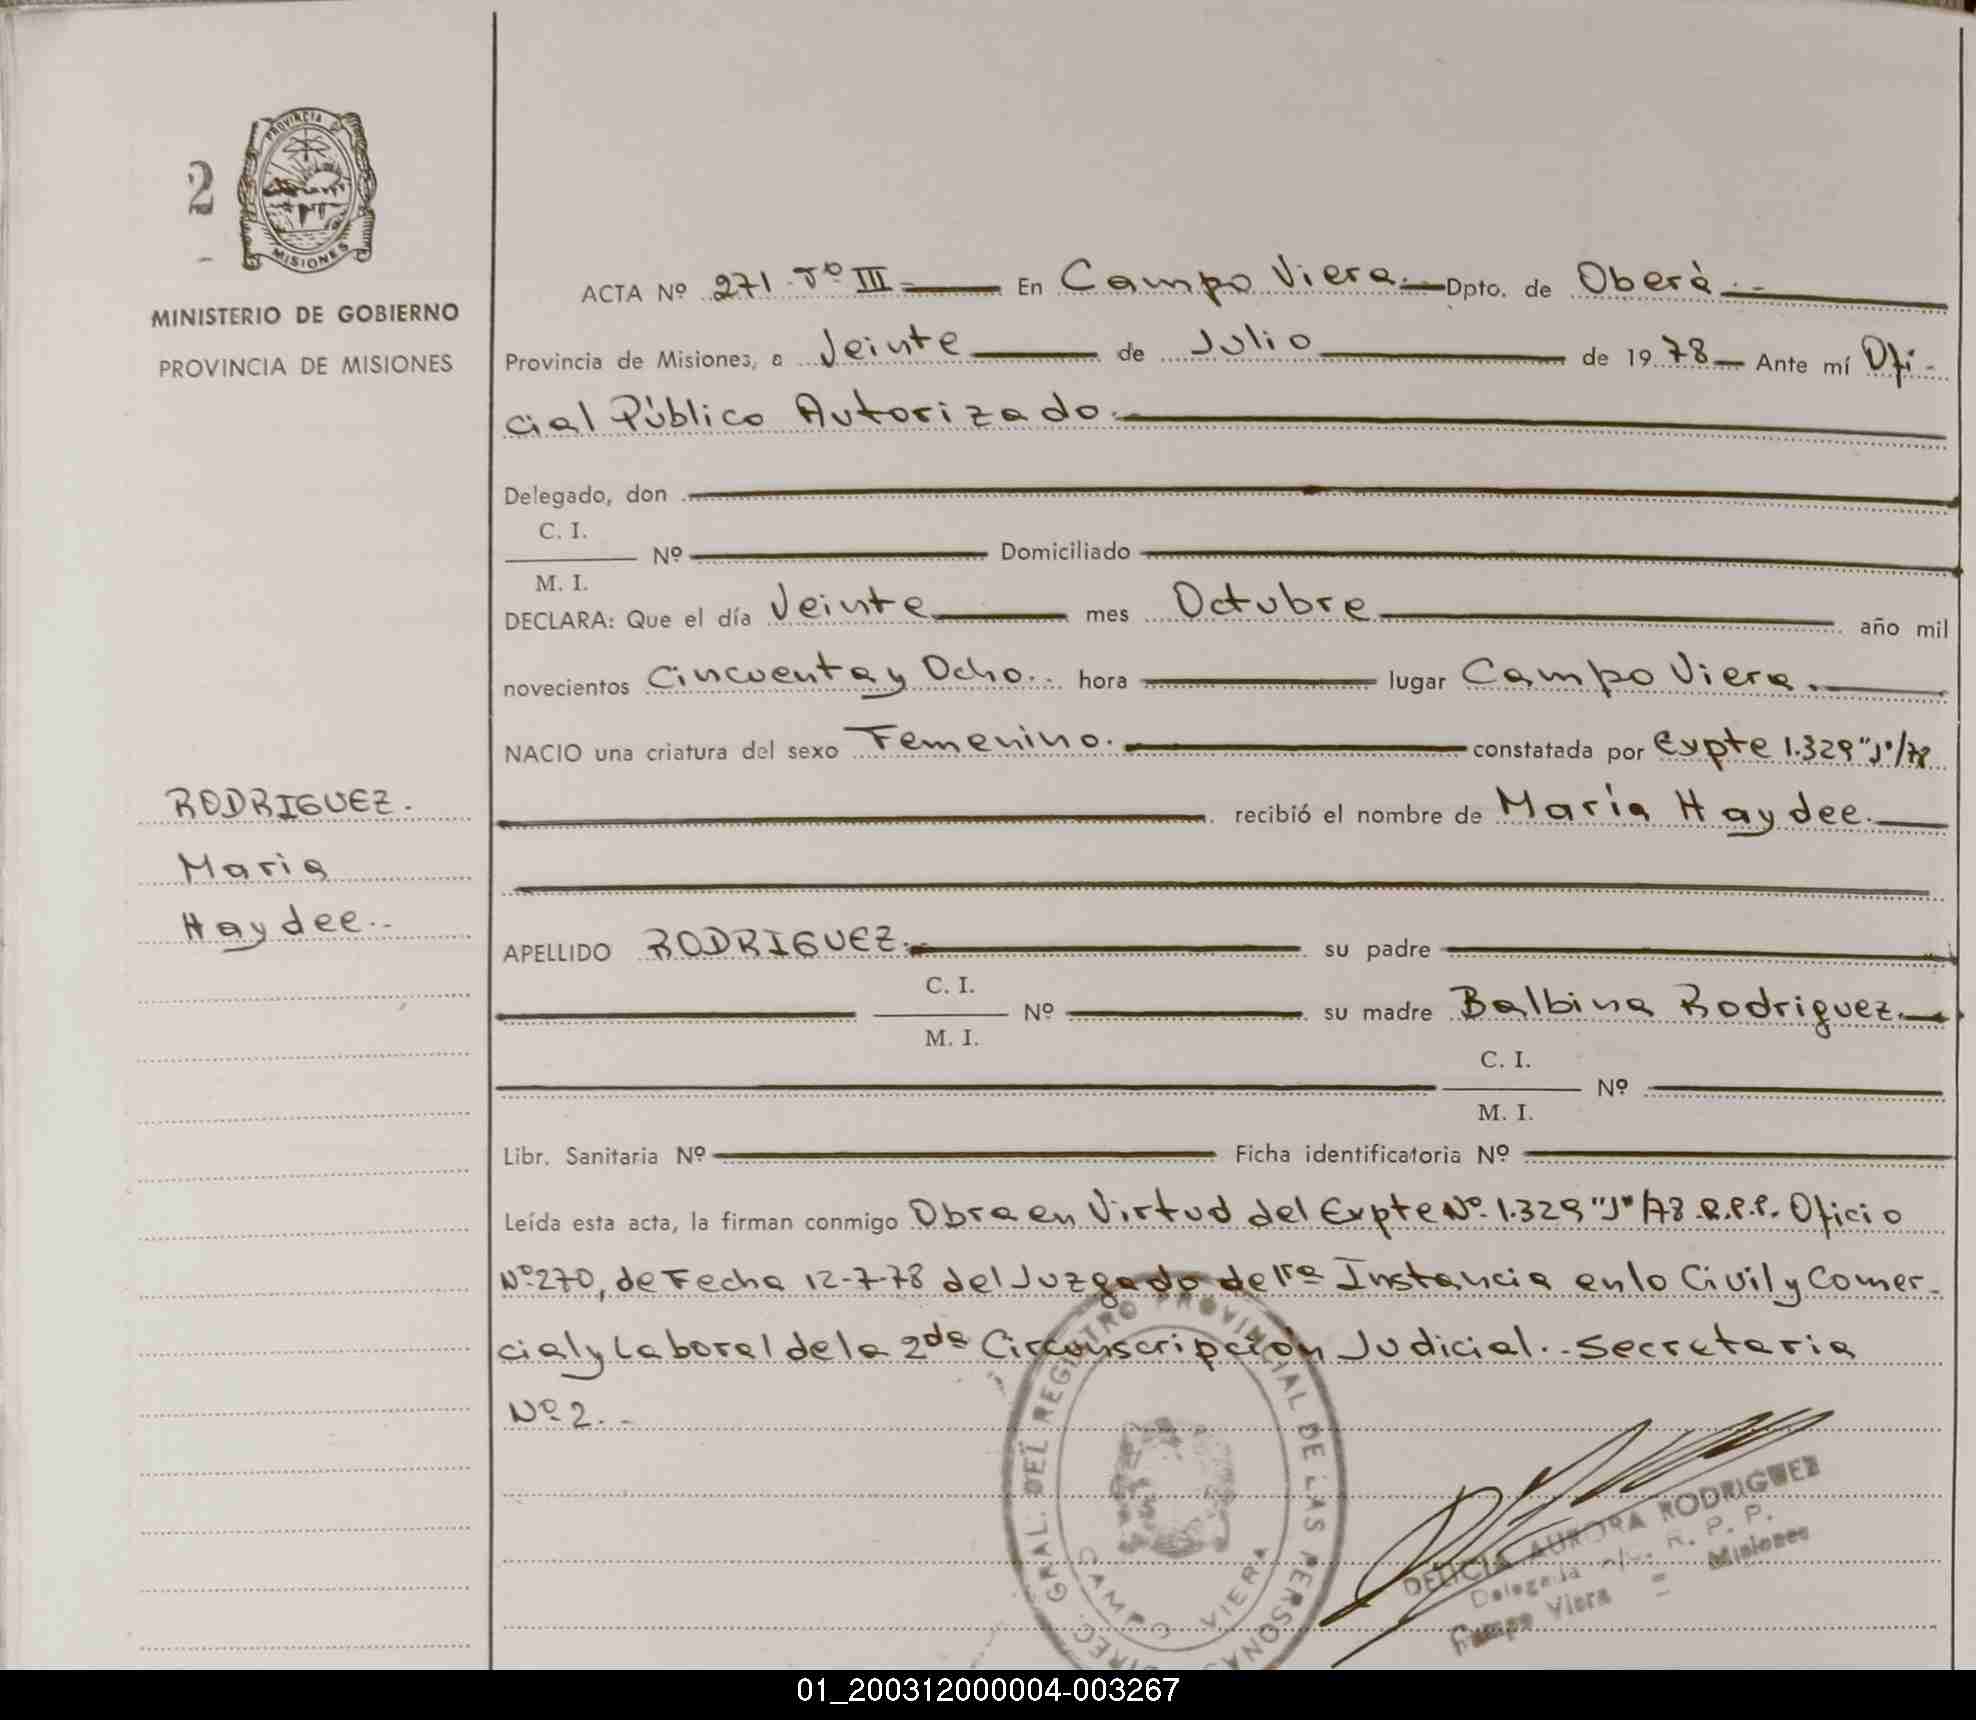 2
PROVINCIA D
MISIONES
MINISTERIO DE GOBIERNO
PROVINCIA DE MISIONES
RODRIGUEZ.
Maria
Haydee..
ACTA Nº 271-Tº III En Campo Viera Dpto. de Oberá
Provincia de Misiones, a Veinte de Julio de 1978 Ante mí Ofi-
cial Público Autorizado.
Delegado, don
C. I.
Nº Domiciliado
M. I.
DECLARA: Que el día Veinte mes Octubre año mil
novecientos Cincuenta y Ocho.. hora lugar Campo Viera.
NACIO una criatura del sexo Femenino. constatada por Expte 1.329 "J"/78
recibió el nombre de María Haydee.
APELLIDO RODRIGUEZ. su padre
C. I.
Nº su madre Balbina Rodriguez.
M. I.
C. I.
Nº
M. I.
Libr. Sanitaria Nº Ficha identificatoria Nº
Leída esta acta, la firman conmigo Obra en Virtud del Expte Nº 1.329 "J"/78 R.P.P. Oficio
Nº 270, de Fecha 12-7-78 del Juzgado de 1ra Instancia en lo Civil y Comer-
cial y Laboral de la 2da Circunscripción Judicial.. Secretaria
Nº 2.-
DIREC. GRAL. DEL REGISTRO PROVINCIAL DE LAS PERSONAS
CAMPO VIERA
DELICIA AURORA RODRIGUEZ
Delegada R. P. P.
Campo Viera = Misiones
01_200312000004-003267